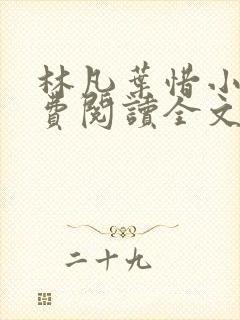 林凡葉惜小
費閱讀全文
二十九